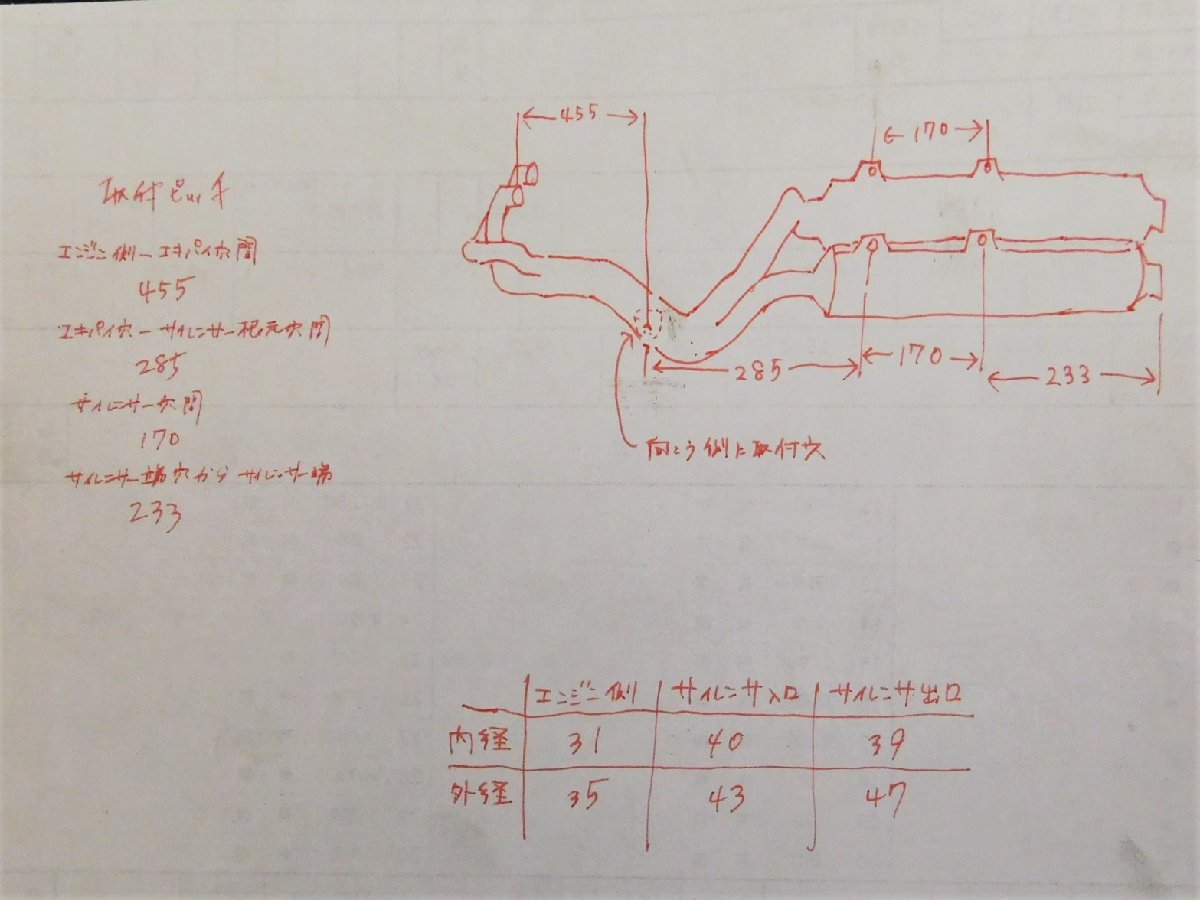 取付ピッチ
エンジン側ーエキパイ穴間
455
エキパイ穴ーサイレンサー根元穴間
285
サイレンサー穴間
170
サイレンサー端穴からサイレンサー端
233
455
170
285
170
233
向こう側に取付穴
エンジン側 サイレンサ入口 サイレンサ出口
内経 31 40 39
外経 35 43 47